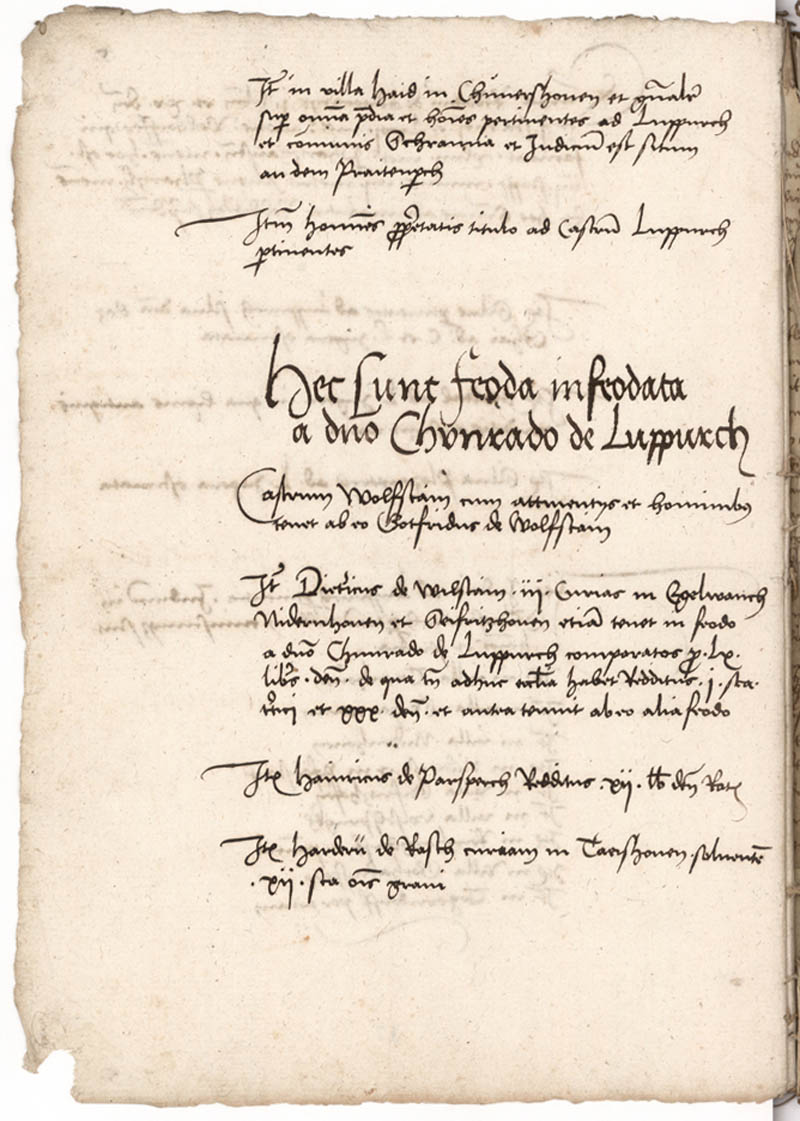 It̃ in villa Haid in Chunershouen et gñalr̃
sup̲ om̃ia p̃dia et hoĩes pertinentes ad Lupp̲urch
et cõmunis Schranna et Iudiciũ est situm
an dem Praitenp̲ch
Itm̃ homĩes p̲p̲etatis titulo ad Castrũ Luppurch
p̲tinentes
Hec sunt feoda infeodata
a dño Chunrado de Luppurch
Castrum Wolfstain cum attinentijs et hominibus
tenet ab eo Gotfridus de Wolfstain
It̃ Dietr̃icus de Wilstain · iij · Curias in Egelwanch
Nidernhouen et Seifritzhouen etiã tenet in feodo
a dño Chunrado de Luppurch comparatos p̲ · lx ·
libr̃s · deñ · de qua tñ adhuc eccl̃ia habet Redditus · j · sca ·
tr̃ici et xxx · deñ · et antea tenuit ab eo alia feodo
Itẽ Hainricus de Parsperch Redditus · xij · lb deñ Rat̃
Itẽ Harderũ de Rasch curiam in Taeishouen soluentẽ
· xij · sca oĩs grani